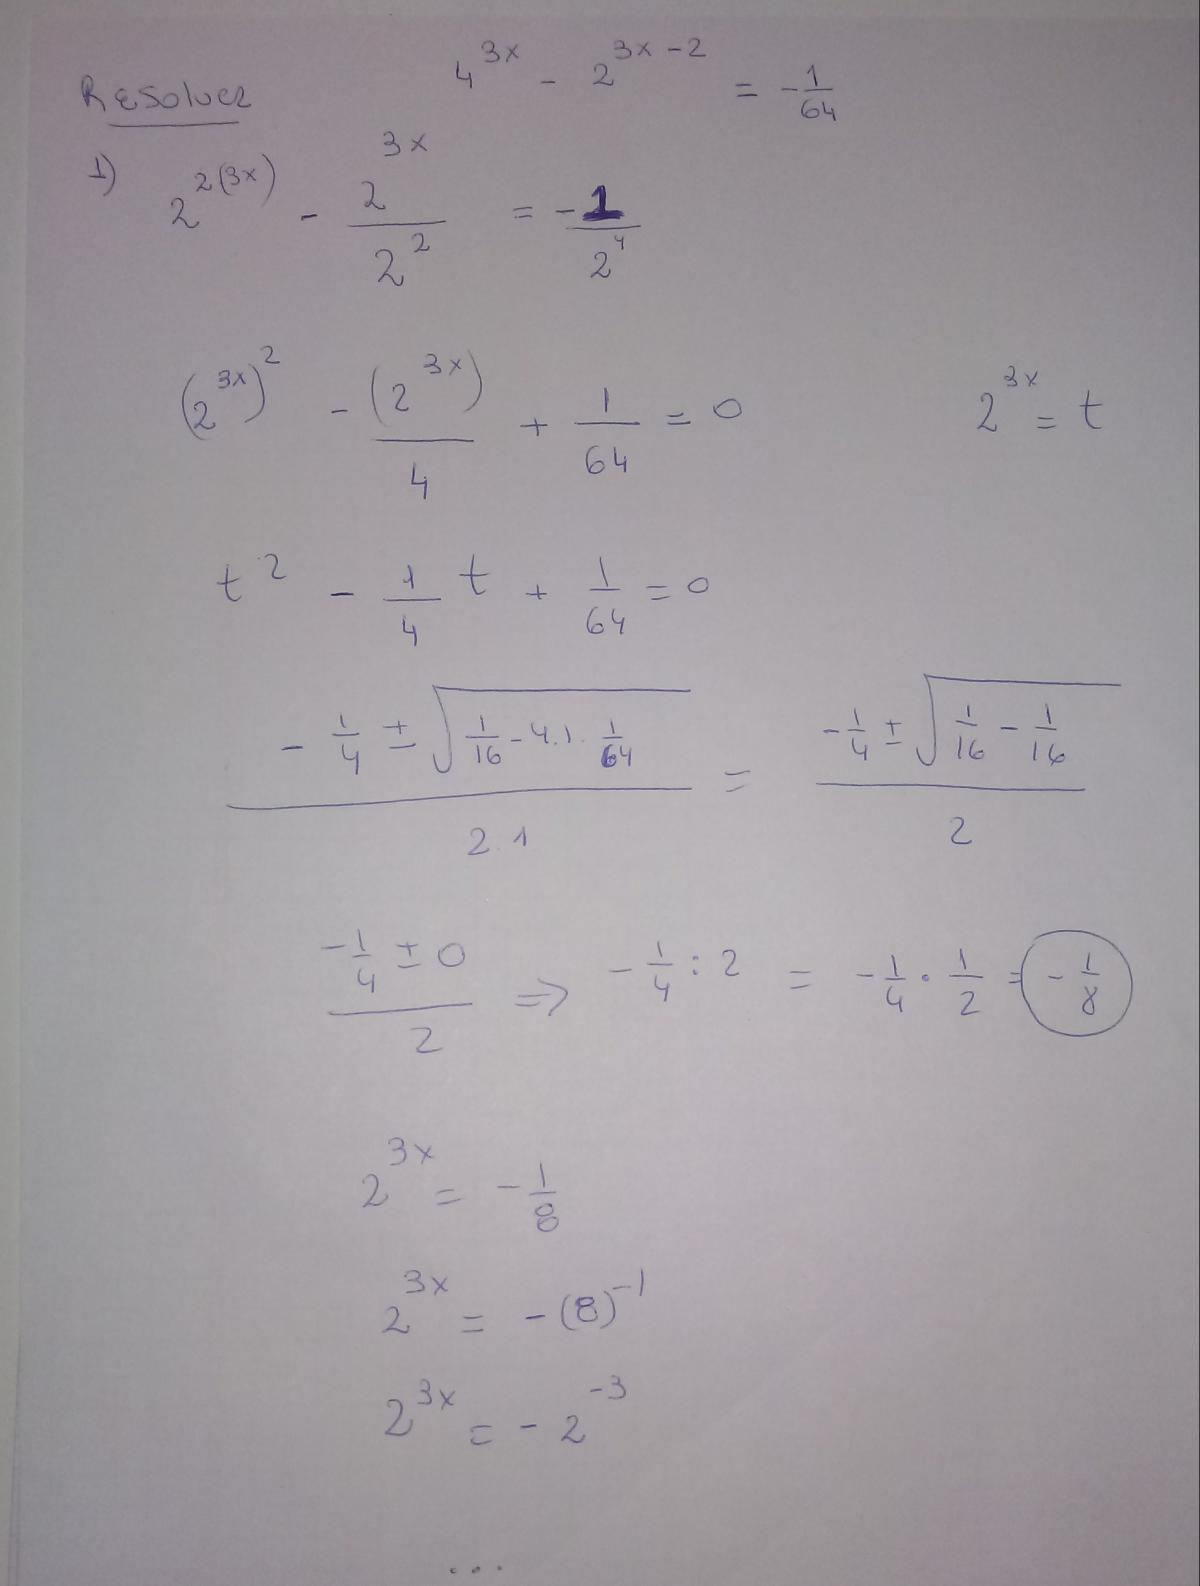 Resolver 4^{3x} - 2^{3x-2} = -\frac{1}{64}
1) 2^{2(3x)} - \frac{2^{3x}}{2^2} = \frac{-1}{2^4}
(2^{3x})^2 - \frac{(2^{3x})}{4} + \frac{1}{64} = 0 2^{3x} = t
t^2 - \frac{1}{4} t + \frac{1}{64} = 0
\frac{-\frac{1}{4} ± \sqrt{\frac{1}{16} - 4.1.\frac{1}{64}}}{2.1} = \frac{-\frac{1}{4} ± \sqrt{\frac{1}{16} - \frac{1}{16}}}{2}
\frac{-\frac{1}{4} ± 0}{2} => -\frac{1}{4} : 2 = -\frac{1}{4} · \frac{1}{2} = -\frac{1}{8}
2^{3x} = -\frac{1}{8}
2^{3x} = -(8)^{-1}
2^{3x} = -2^{-3}
...